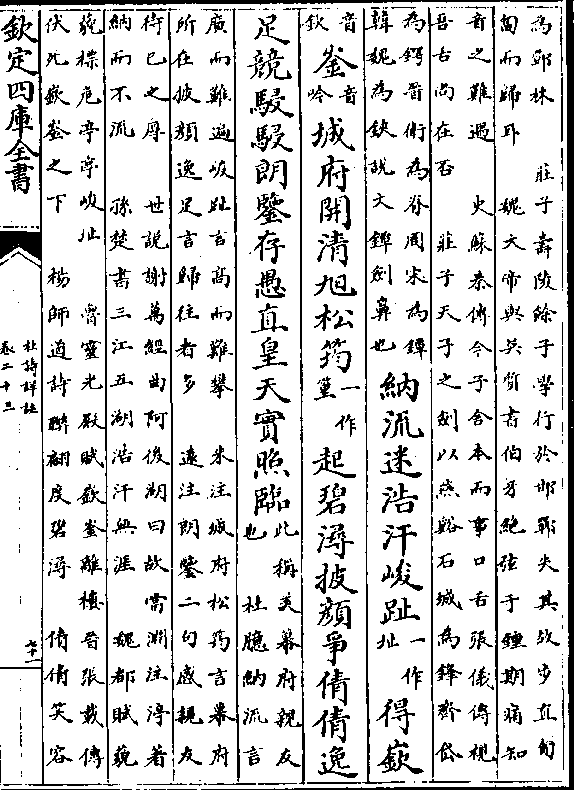 為鄧林　莊子壽陵餘子學行於邯鄲失其故步直匍
匐而歸耳　魏文帝與吳質書伯牙絶弦于鍾期痛知
音之難遇　史蘇秦傳今子舍本而事口舌張儀傳視
吾舌尚在否　莊子天子之劍以燕谿石城為鋒齊岱
為鍔晉衛為脊周宋為鐔
韓魏為鋏說文鐔劍鼻也
納流迷浩汗峻趾一作址得嶔
音欽
崟音吟
城府開清旭松筠一作篁起碧潯披顔爭倩倩逸
足競駸駸朗鑒存愚直皇天實照臨此稱美幕府親友也
杜臆納流言
廣而難遍峻趾言高而難攀　朱注城府松筠言幕府
所在披顔逸足言歸往者多　遠注朗鑒二句感親友
待已之厚　世說謝萬經曲阿後湖曰故當淵注渟著
納而不流　孫楚書三江五湖浩汗無涯　魏都賦藐
藐標危亭亭峻址　魯靈光殿賦嶔崟離樓晉張載傳
伏死嶔崟之下　楊師道詩聯翩度碧潯　倩倩笑容
欽定四庫全書
杜詩詳註
卷二十三